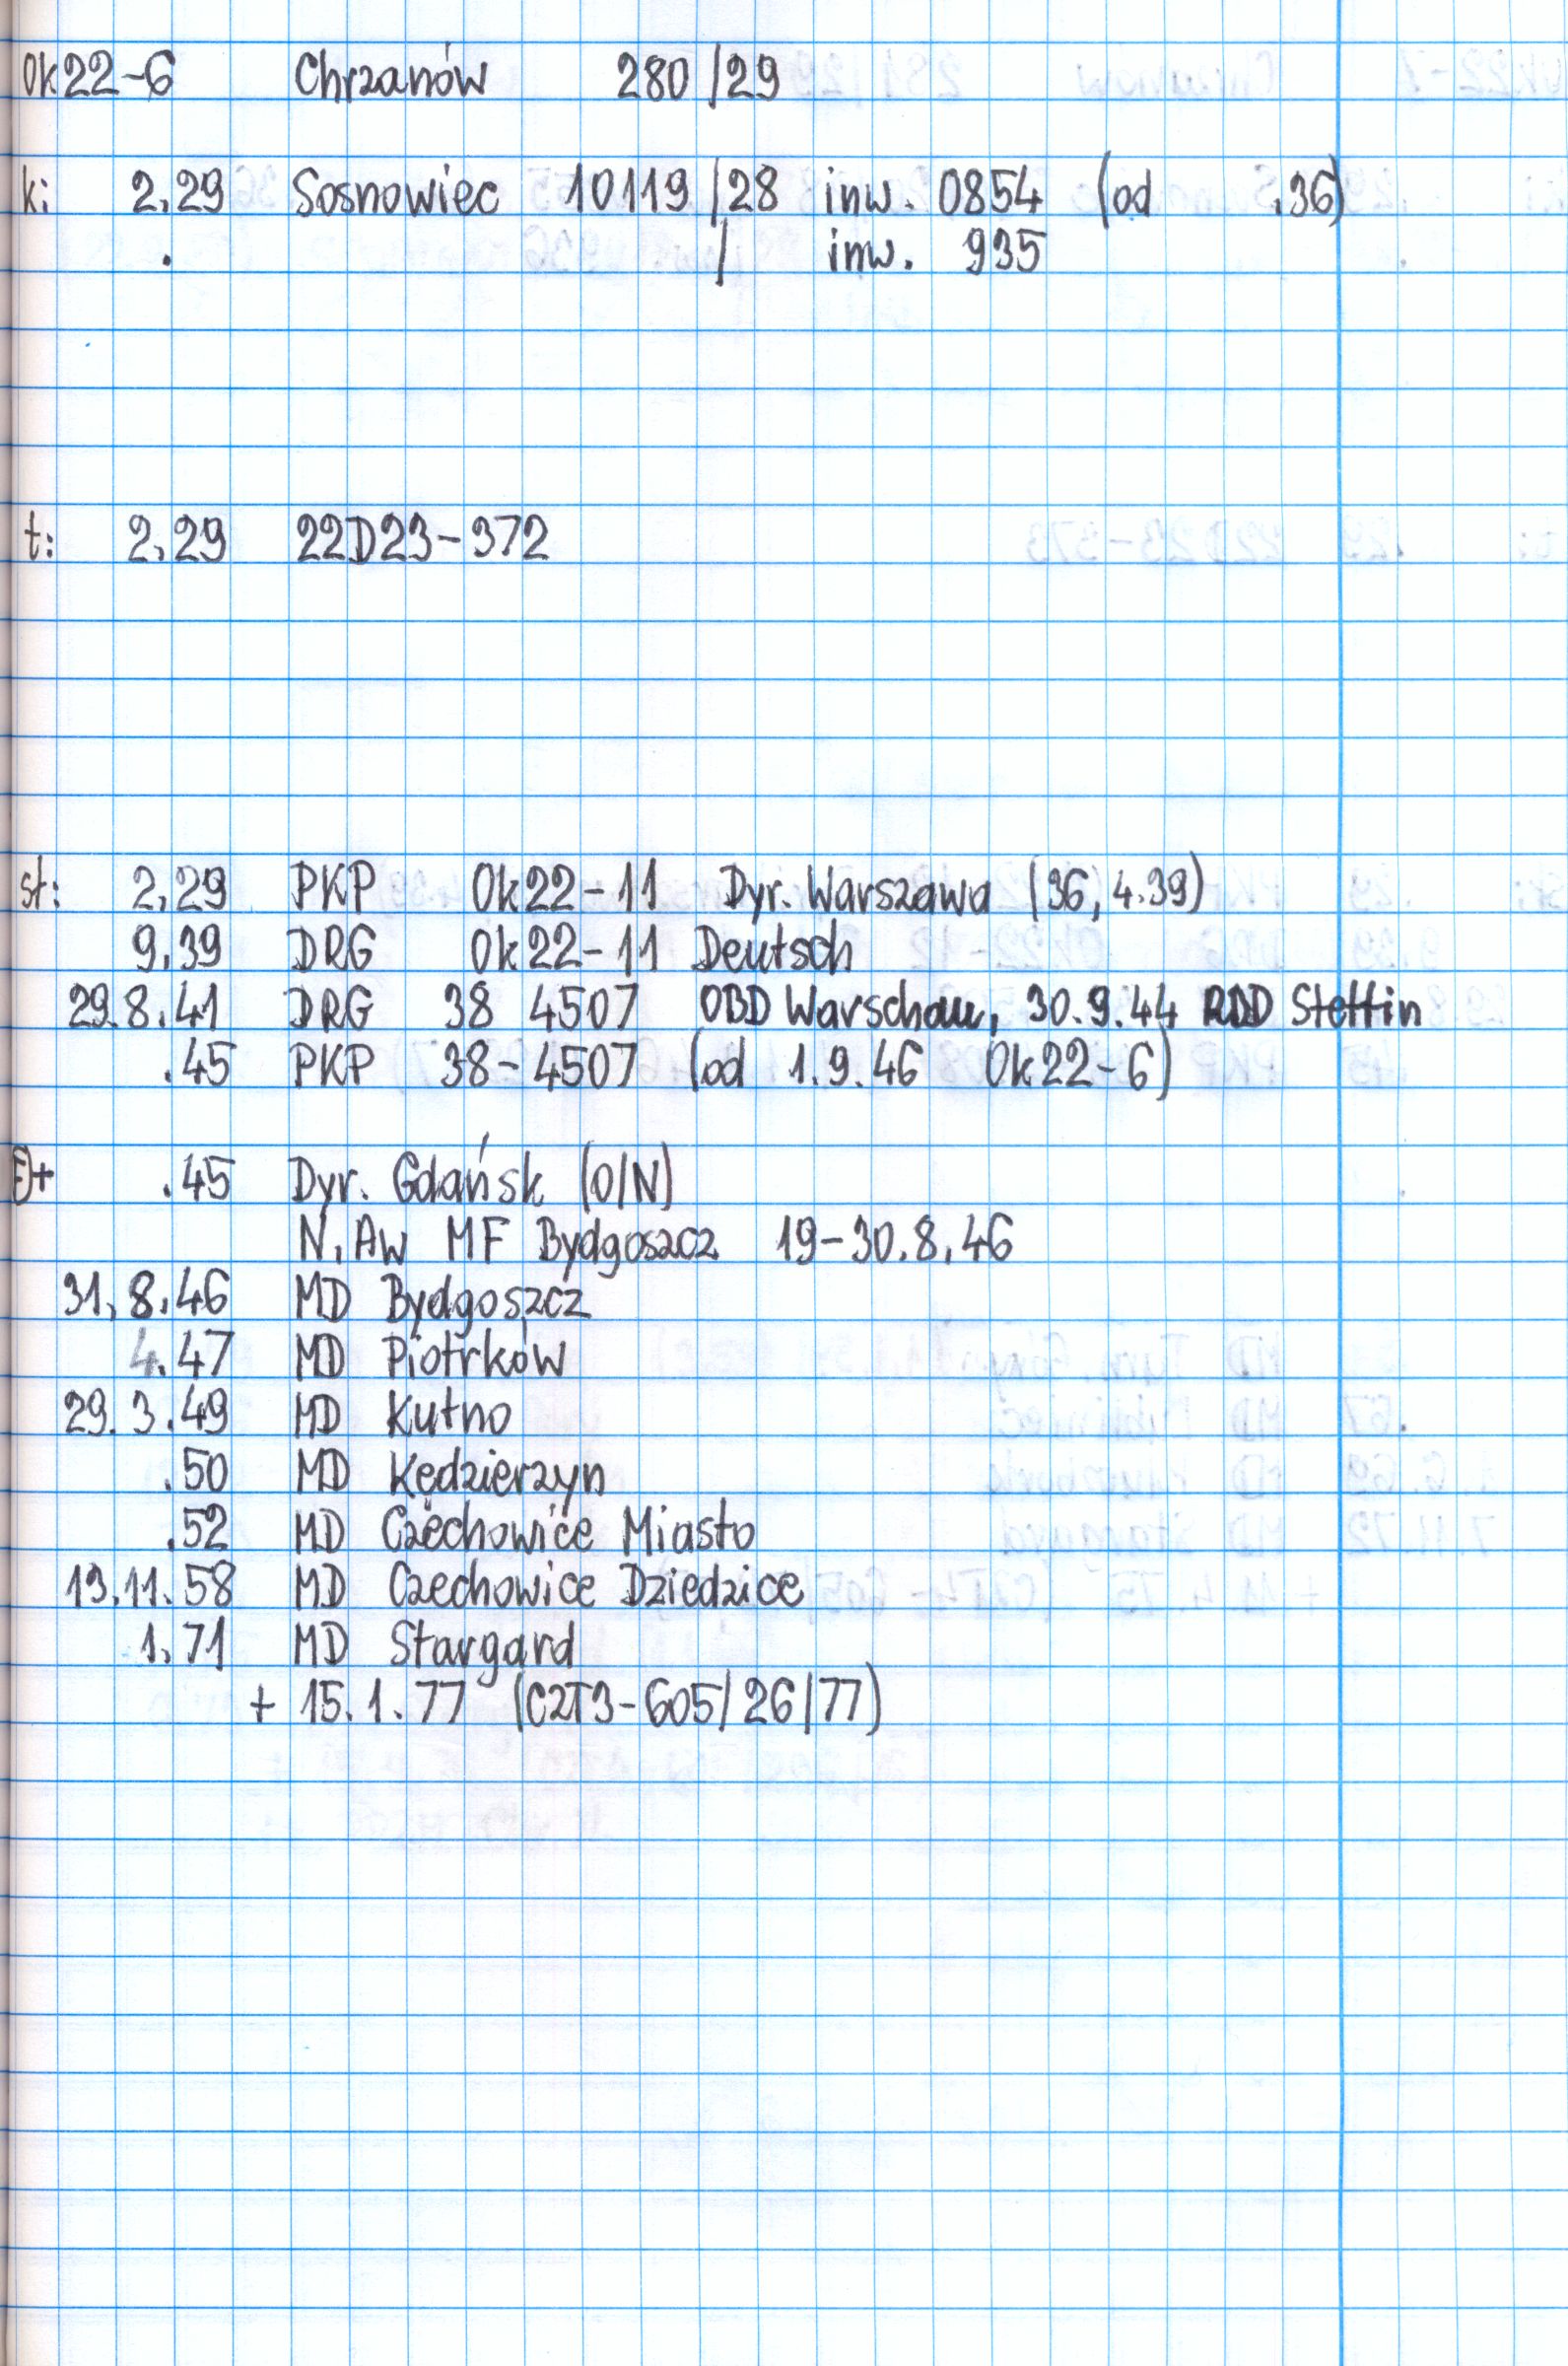 Ok22-6 Chrzanów 280/29
k: 2.29 Sosnowiec 10119/28 inw. 0854 (od .36)
. / inw. 935
t: 2.29 22D23-372
st: 2.29 PKP Ok22-11 Dyr. Warszawa (36, 4.39)
9.39 DRG Ok22-11 Deutsch
29.8.41 DRG 38 4507 OBD Warschau, 30.9.44 RBD Stettin
.45 PKP 38-4507 (od 1.9.46 Ok22-6)
.45 Dyr. Gdańsk (O/N)
N. Aw MF Bydgoszcz 19-30.8.46
31.8.46 MD Bydgoszcz
4.47 MD Piotrków
29.3.49 MD Kutno
.50 MD Kędzierzyn
.52 MD Czechowice Miasto
19.11.58 MD Czechowice Dziedzice
1.71 MD Stargard
+ 15.1.77 (C2T3-605/26/77)